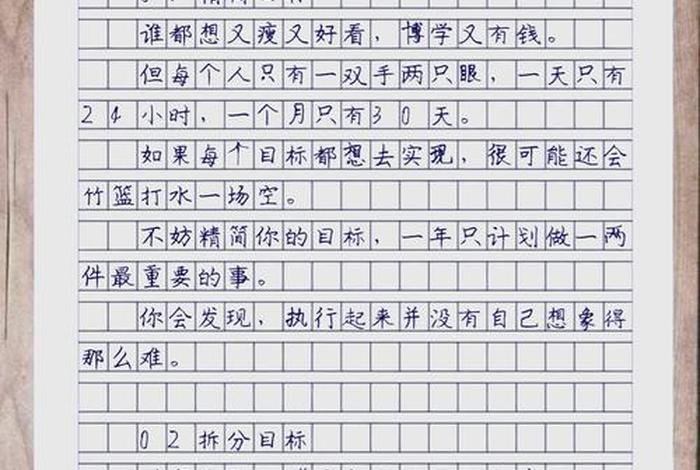 谁都想又瘦又好看，博学又有钱。
但每个人只有一双手两只眼，一天只有
24小时，一个月只有30天。
如果每个目标都想去实现，很可能还会
竹篮打水一场空。
不妨精简你的目标，一年只计划做一两
件最重要的事。
你会发现，执行起来并没有自己想象得
那么难。
02拆分目标